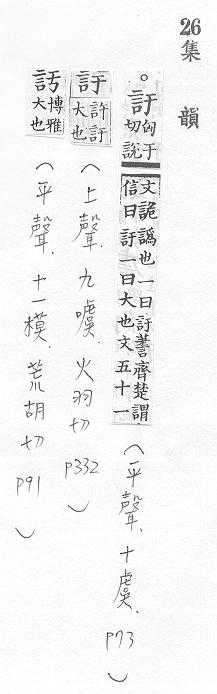 26
集韻
。訏匈于切說文詭譌也一曰訏謩齊楚謂信曰訏一曰大也文五十一(平聲、十虞、p73)
訏許訏大也(上聲、九噳、火羽切 p332)
博雅大也(平聲、十一模、荒胡切 p91)